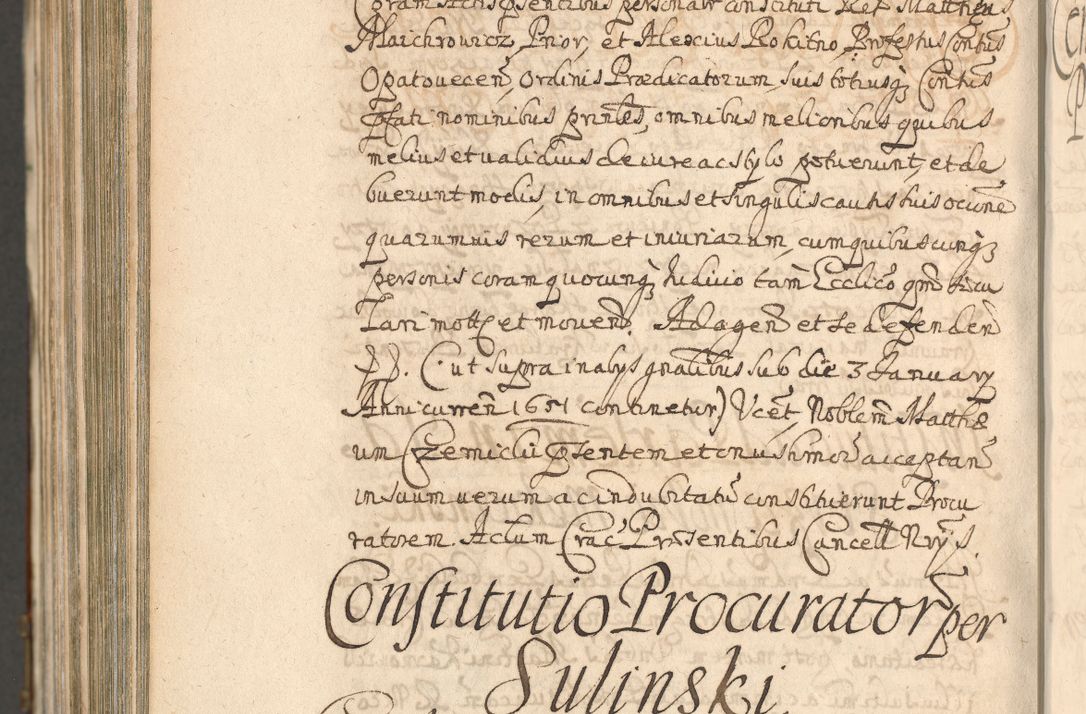 Coram Actis psentibus personalr constituti Rel. Matthęus
Maichrowicz Prior, et Alexius Rokitno Professus Contus
Opatouecen, Ordinis Prædicatorum, suis totiusq; Contus
pfati nominibus printes, omnibus melioribus quibus
melius et ualidius de iure ac stylo potuerunt, et de
buerunt modis, in omnibus et singulis causis suis occne
quarumuis rerum et iniuriarum, cum quibuscunq;
personis coram quocunq; Iudicio tam Ecclico qm secu
lari mottr et mouen. Ad agen et se defenden
PP. (ut supra in alijs gnalibus sub die 3 Ianuary
Anni curren 1651 continetur) Ucet Noblem Matthę
um Czemicki psentem et onus hmoi acceptan
in suum uerum ac indubitatu constituerunt Procu
ratorem. Actum Crac. Præsentibus Cancell Nrijs.
Constitutio Procurator per
Sulinski